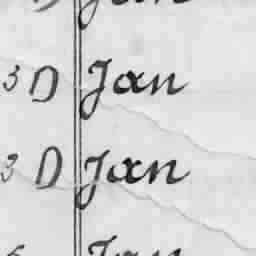 Jan
3 D Jan
3 D Jan
Jan